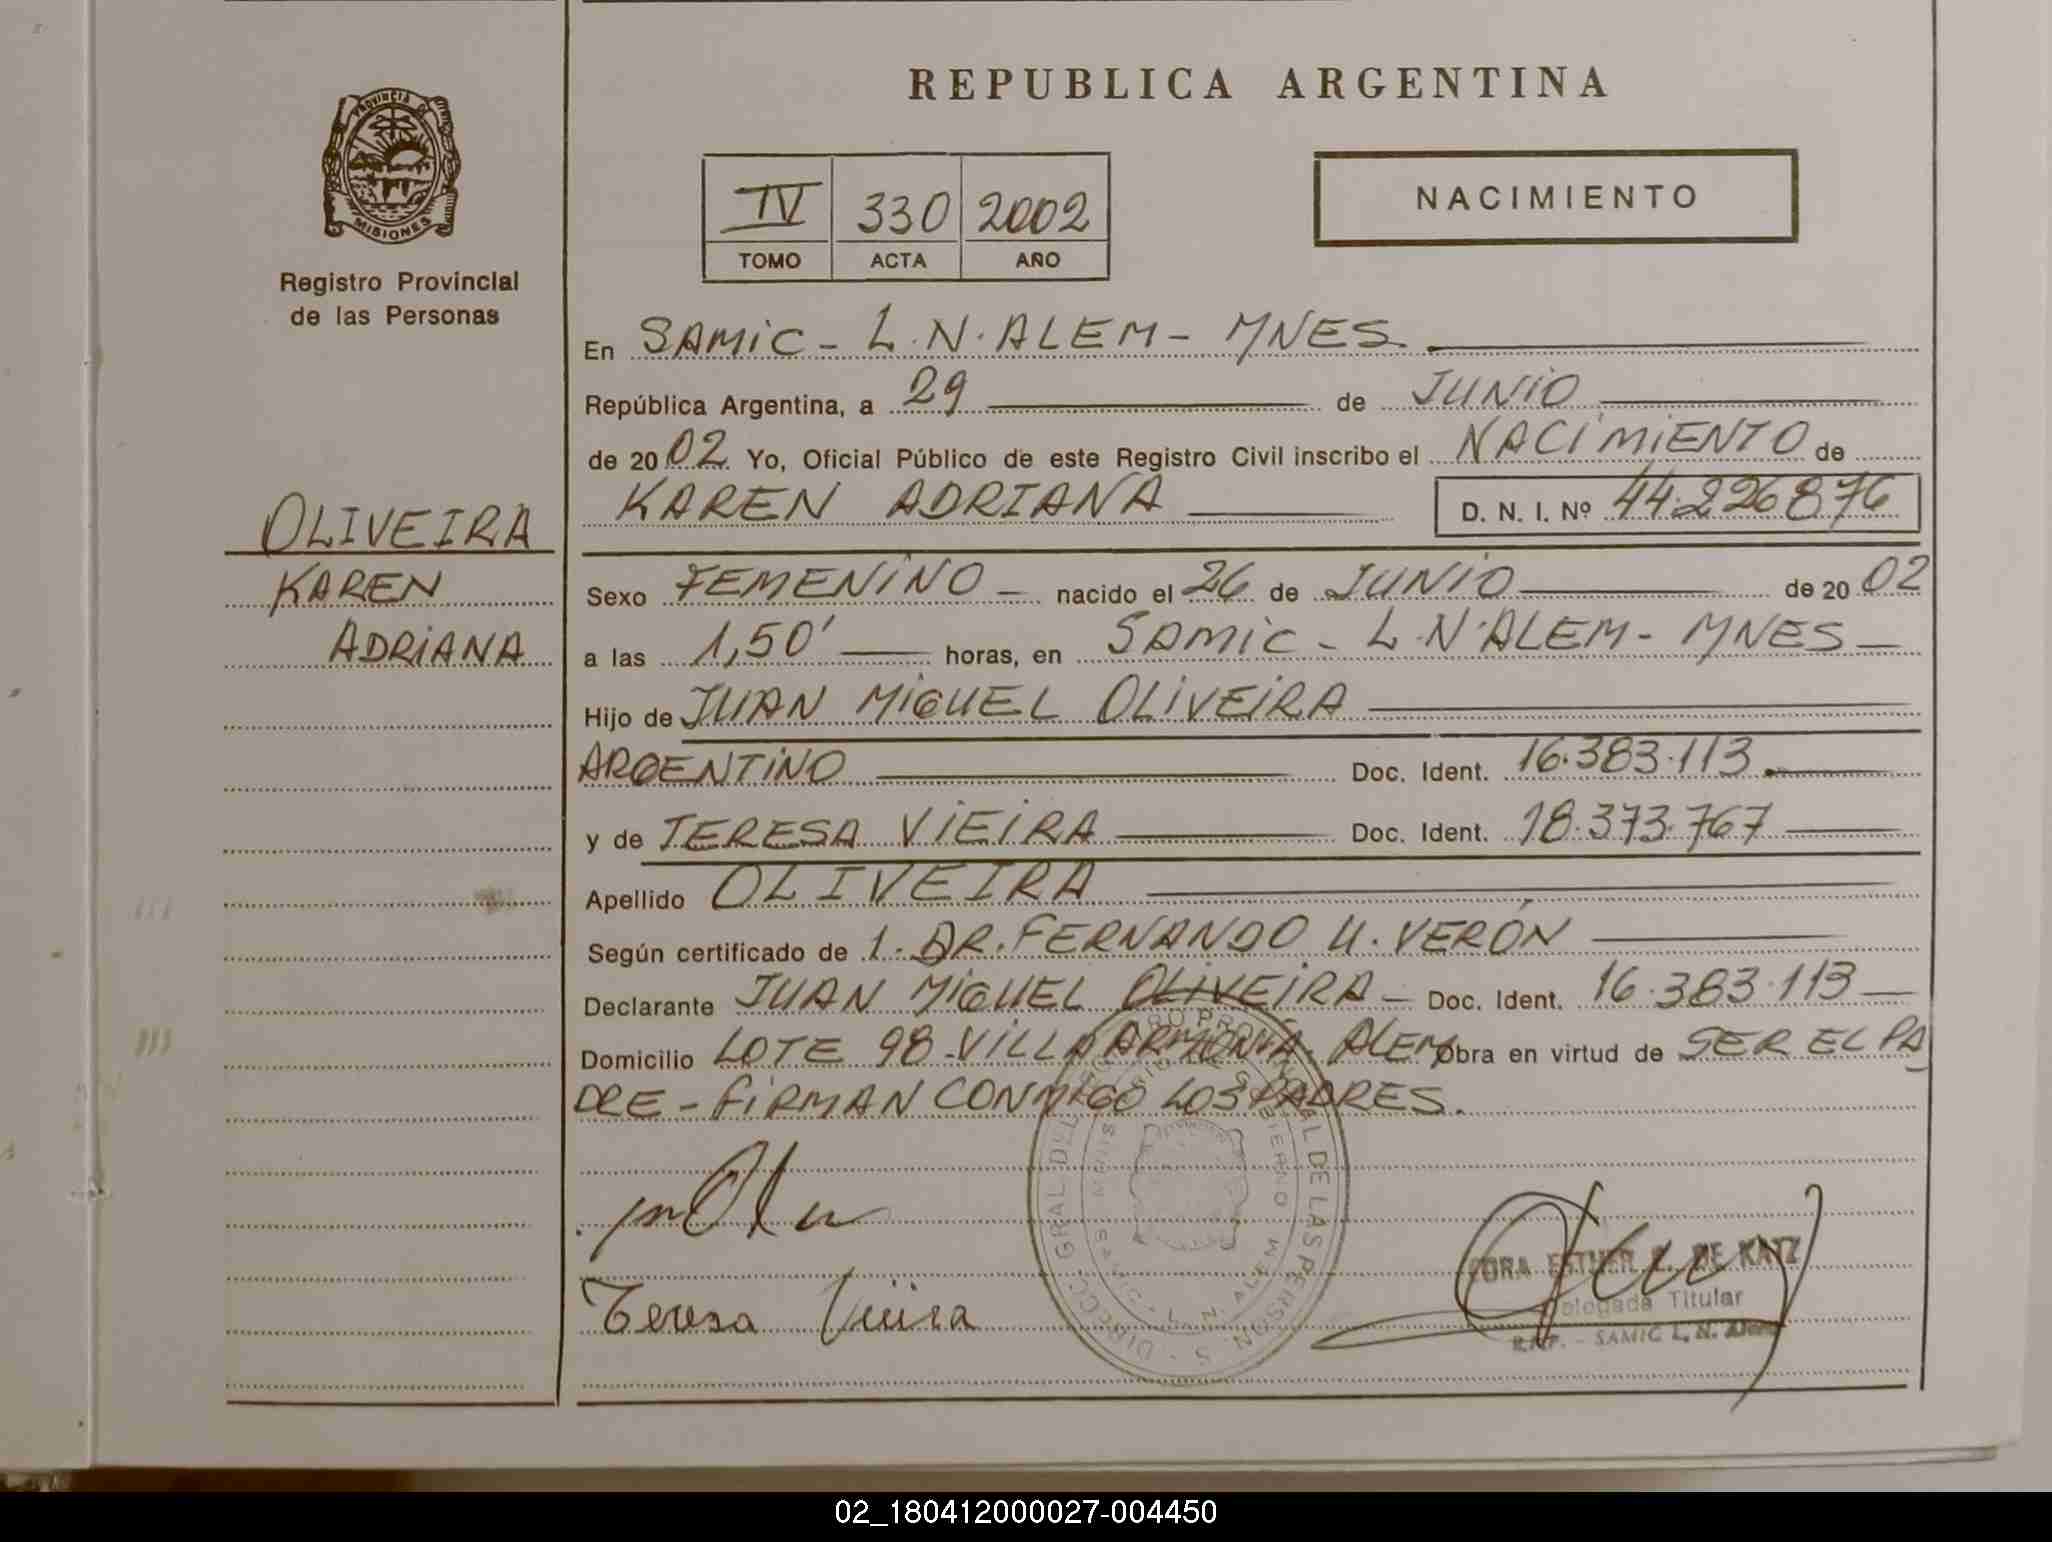 REPUBLICA ARGENTINA
PROVINCIA DE MISIONES
Registro Provincial
de las Personas
IV 330 2002
TOMO ACTA AÑO
NACIMIENTO
En SAMIC - L.N. ALEM - MNES.
República Argentina, a 29 de JUNIO
de 2002 Yo, Oficial Público de este Registro Civil inscribo el NACIMIENTO de
KAREN ADRIANA D. N. I. Nº 44.226876
OLIVEIRA
KAREN
ADRIANA
Sexo FEMENINO - nacido el 26 de JUNIO de 2002
a las 1,50' horas, en SAMIC - L.N. ALEM - MNES -
Hijo de JUAN MIGUEL OLIVEIRA
ARGENTINO Doc. Ident. 16.383.113.
y de TERESA VIEIRA Doc. Ident. 18.373.767
Apellido OLIVEIRA
Según certificado de 1. DR. FERNANDO U. VERÓN
Declarante JUAN MIGUEL OLIVEIRA - Doc. Ident. 16.383.113
Domicilio LOTE 98 - VILLA ARMONÍA. ALEM Obra en virtud de SER EL PA
DRE - FIRMAN CONMIGO LOS PADRES.
Teresa Vieira
ESTHER DE KATZ
Delegada Titular
R.P.P. - SAMIC L. N. Alem
02_180412000027-004450